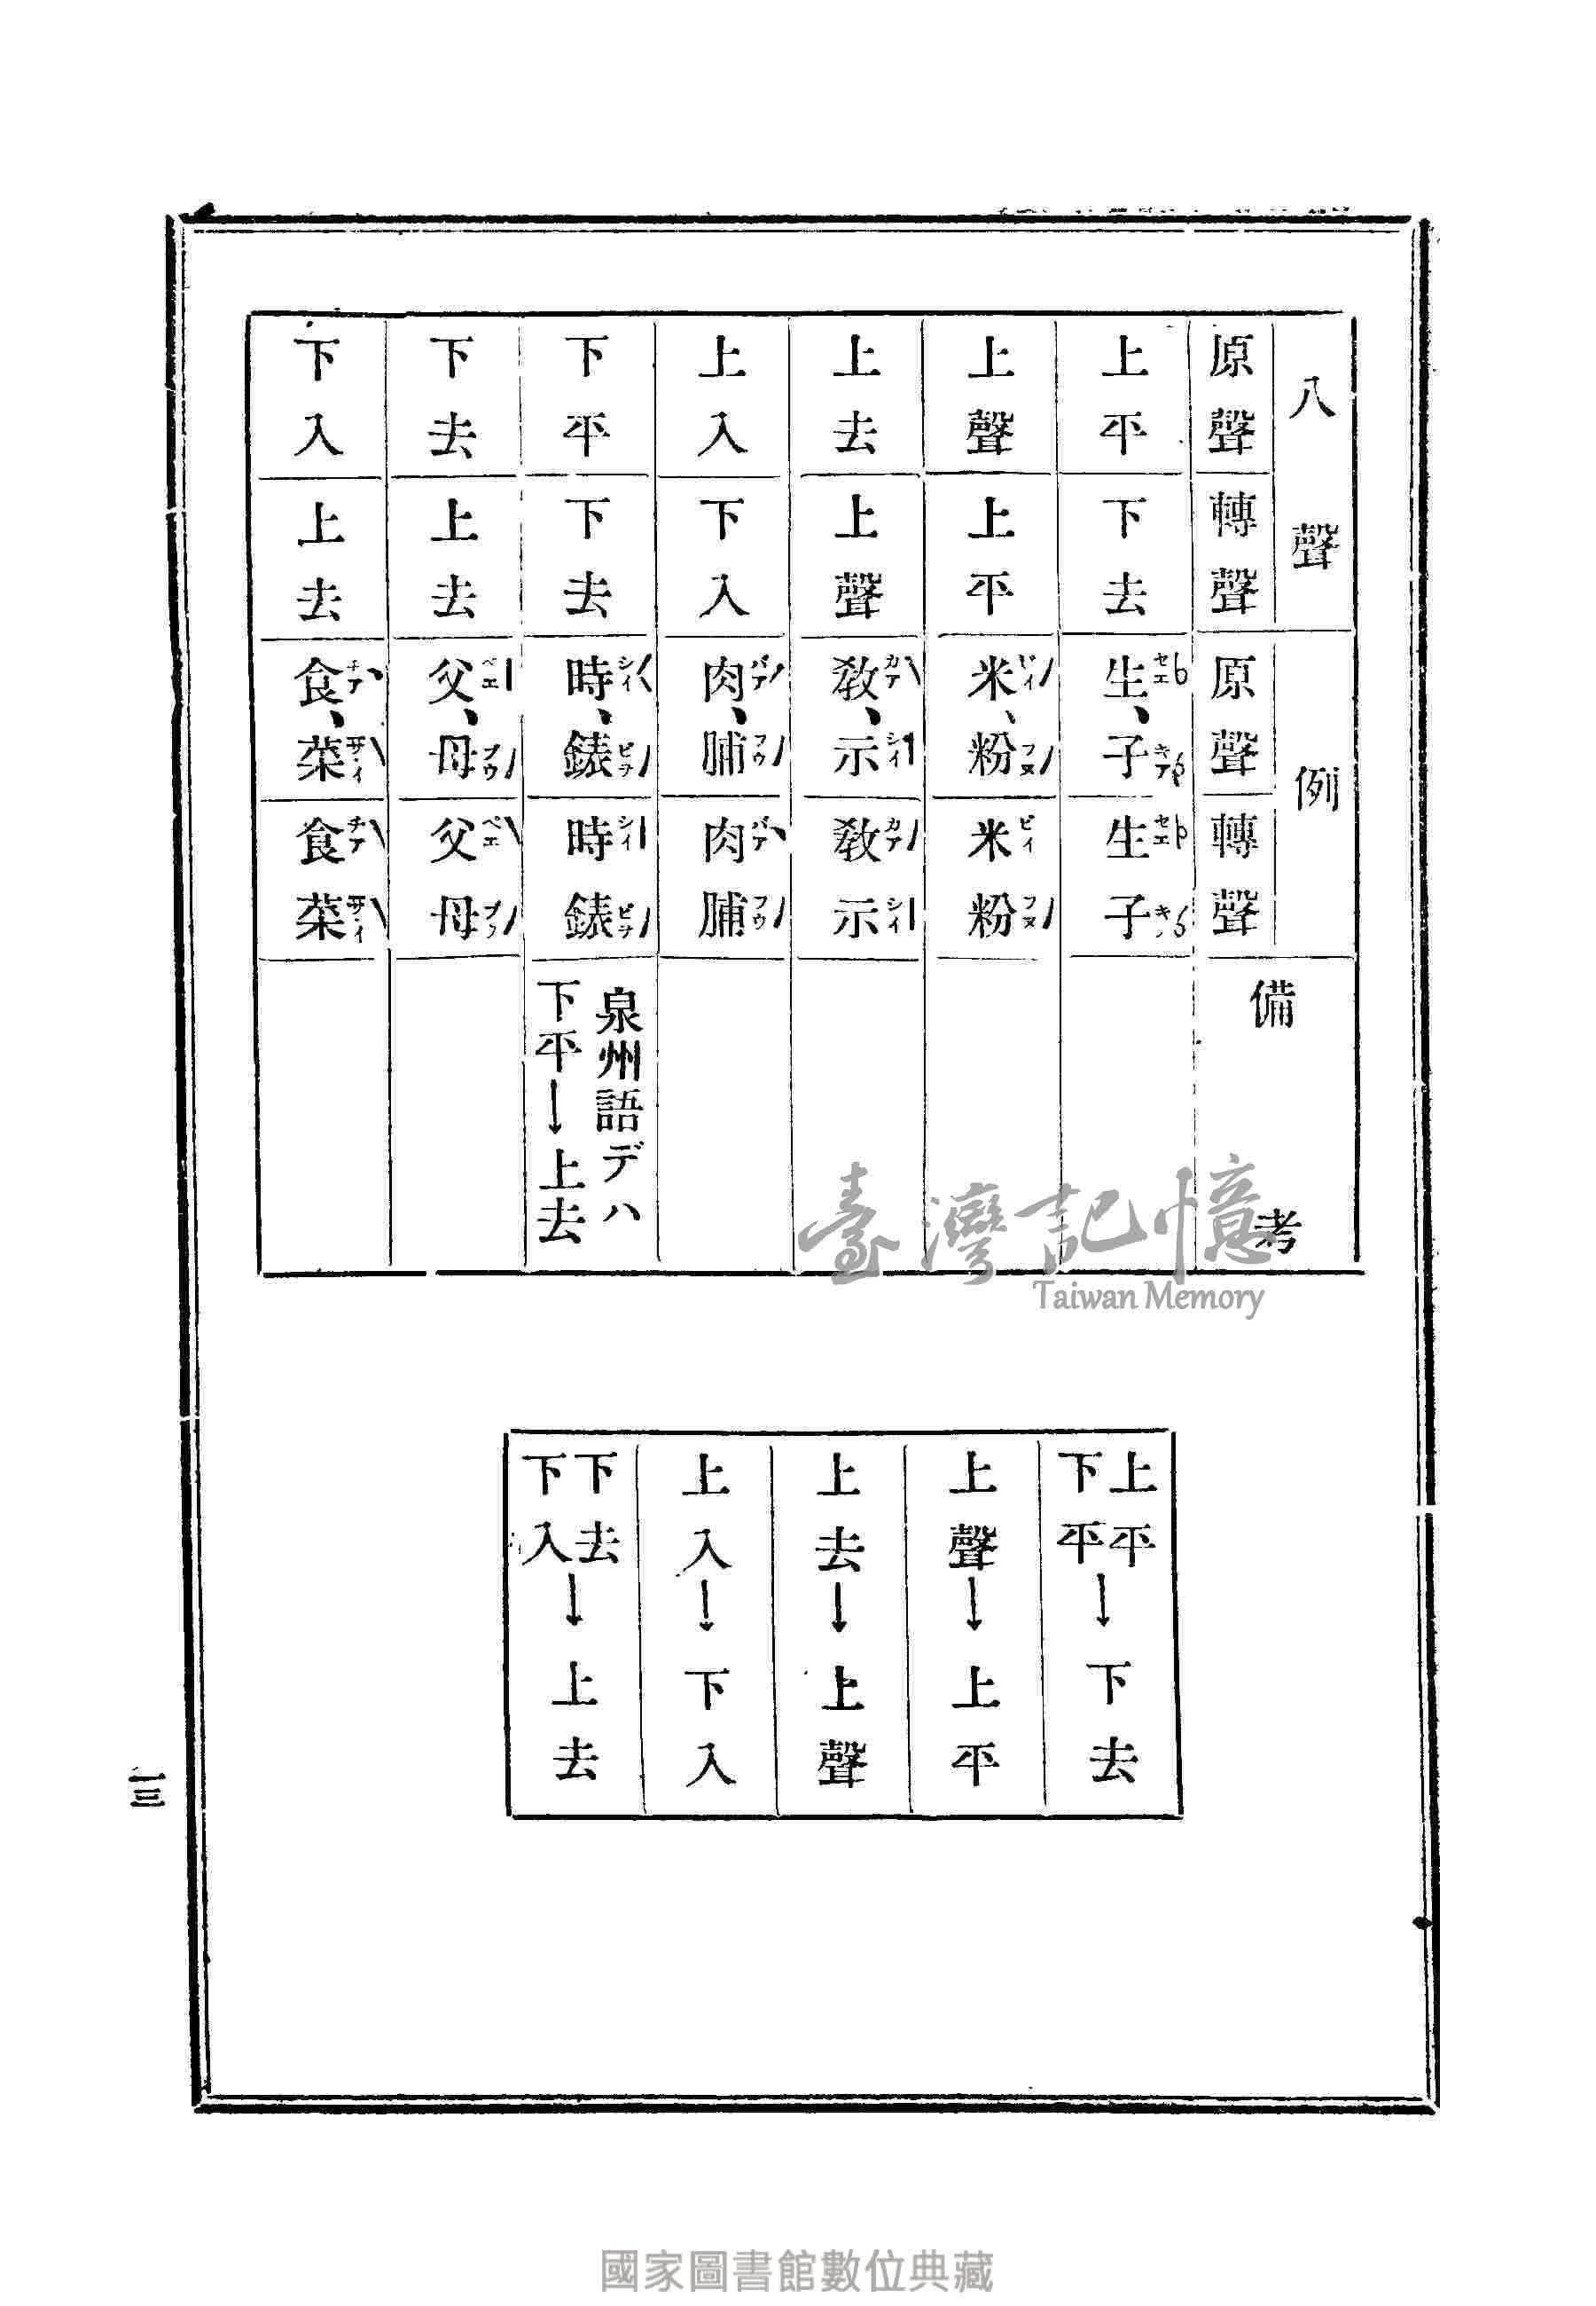 八聲
原聲 轉聲
例
原聲 轉聲
備考
上平 下去 生、子 生子
上聲 上平 米、粉 米粉
上去 上聲 教、示 教示
上入 下入 肉、脯 肉脯
下平 下去 時、錶 時錶 泉州語デハ
下平→上去
下去 上去 父、母 父母
下入 上去 食、菜 食菜
上平
下平→下去
上聲→上平
上去→上聲
上入→下入
下去
下入→上去
一三
臺灣記憶
Taiwan Memory
國家圖書館數位典藏